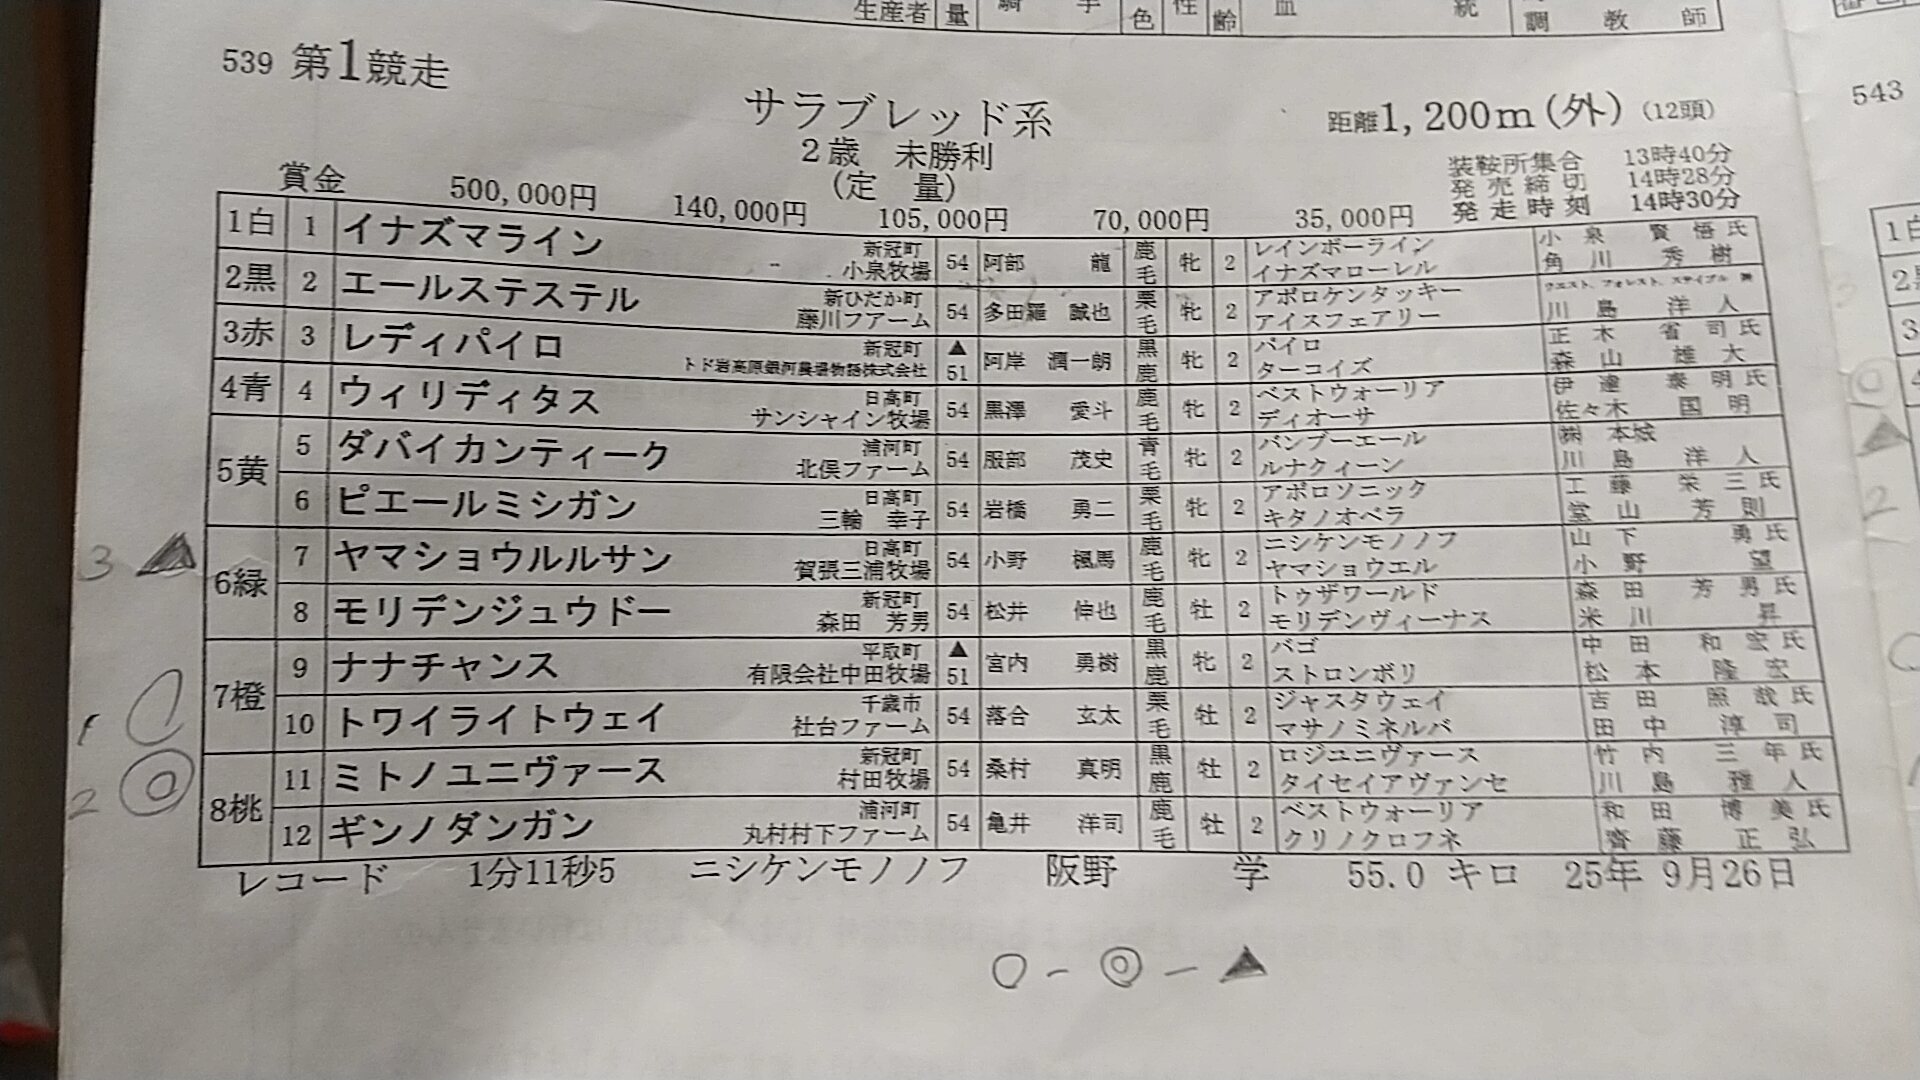 生産者 量 騎 手 色 性 齢 血 統 調 教 師
539 第1競走
543
サラブレッド系
距離1,200m(外) (12頭)
2歳 未勝利
(定 量)
装鞍所集合 13時40分
発売締切 14時28分
発走時刻 14時30分
賞金 500,000円 140,000円 105,000円 70,000円 35,000円
1白 1 イナズマライン 新冠町 小泉牧場 54 阿部 龍 鹿毛 牝 2 レインボーライン イナズマローレル 小泉 賢悟氏 角川 秀樹
2黒 2 エールステステル 新ひだか町 藤川フアーム 54 多田羅 誠也 栗毛 牝 2 アポロケンタッキー アイスフェアリー クエスト、フォレスト、ステイブル 川島 洋人
3赤 3 レディパイロ 新冠町 トド岩高原銀河農場物語株式会社 ▲ 51 阿岸 潤一朗 黒鹿 牝 2 パイロ ターコイズ 正木 省司氏 森山 雄大
4青 4 ウィリディタス 日高町 サンシャイン牧場 54 黒澤 愛斗 鹿毛 牝 2 ベストウォーリア ディオーサ 伊達 泰明氏 佐々木 国明
5黄 5 ダバイカンティーク 浦河町 北俣ファーム 54 服部 茂史 青毛 牝 2 バンブーエール ルナクィーン ㈱ 本城 川島 洋人
6 ピエールミシガン 日高町 三輪 幸子 54 岩橋 勇二 栗毛 牝 2 アポロソニック キタノオペラ 工藤 栄三氏 堂山 芳則
3 ▲ 6緑 7 ヤマショウルルサン 日高町 賀張三浦牧場 54 小野 楓馬 鹿毛 牝 2 ニシケンモノノフ ヤマショウエル 山下 勇氏 小野 望
8 モリデンジュウドー 新冠町 森田 芳男 54 松井 伸也 鹿毛 牡 2 トゥザワールド モリデンヴィーナス 森田 芳男氏 米川 昇
7橙 9 ナナチャンス 平取町 有限会社中田牧場 ▲ 51 宮内 勇樹 黒鹿 牝 2 バゴ ストロンボリ 中田 和宏氏 松本 隆宏
1 ○ 10 トワイライトウェイ 千歳市 社台ファーム 54 落合 玄太 栗毛 牡 2 ジャスタウェイ マサノミネルバ 吉田 照哉氏 田中 淳司
2 ◎ 8桃 11 ミトノユニヴァース 新冠町 村田牧場 54 桑村 真明 黒鹿 牡 2 ロジユニヴァース タイセイアヴァンセ 竹内 三年氏 川島 雅人
12 ギンノダンガン 浦河町 丸村村下ファーム 54 亀井 洋司 鹿毛 牡 2 ベストウォーリア クリノクロフネ 和田 博美氏 齊藤 正弘
レコード 1分11秒5 ニシケンモノノフ 阪野 学 55.0 キロ 25年 9月26日
○ - ◎ - ▲